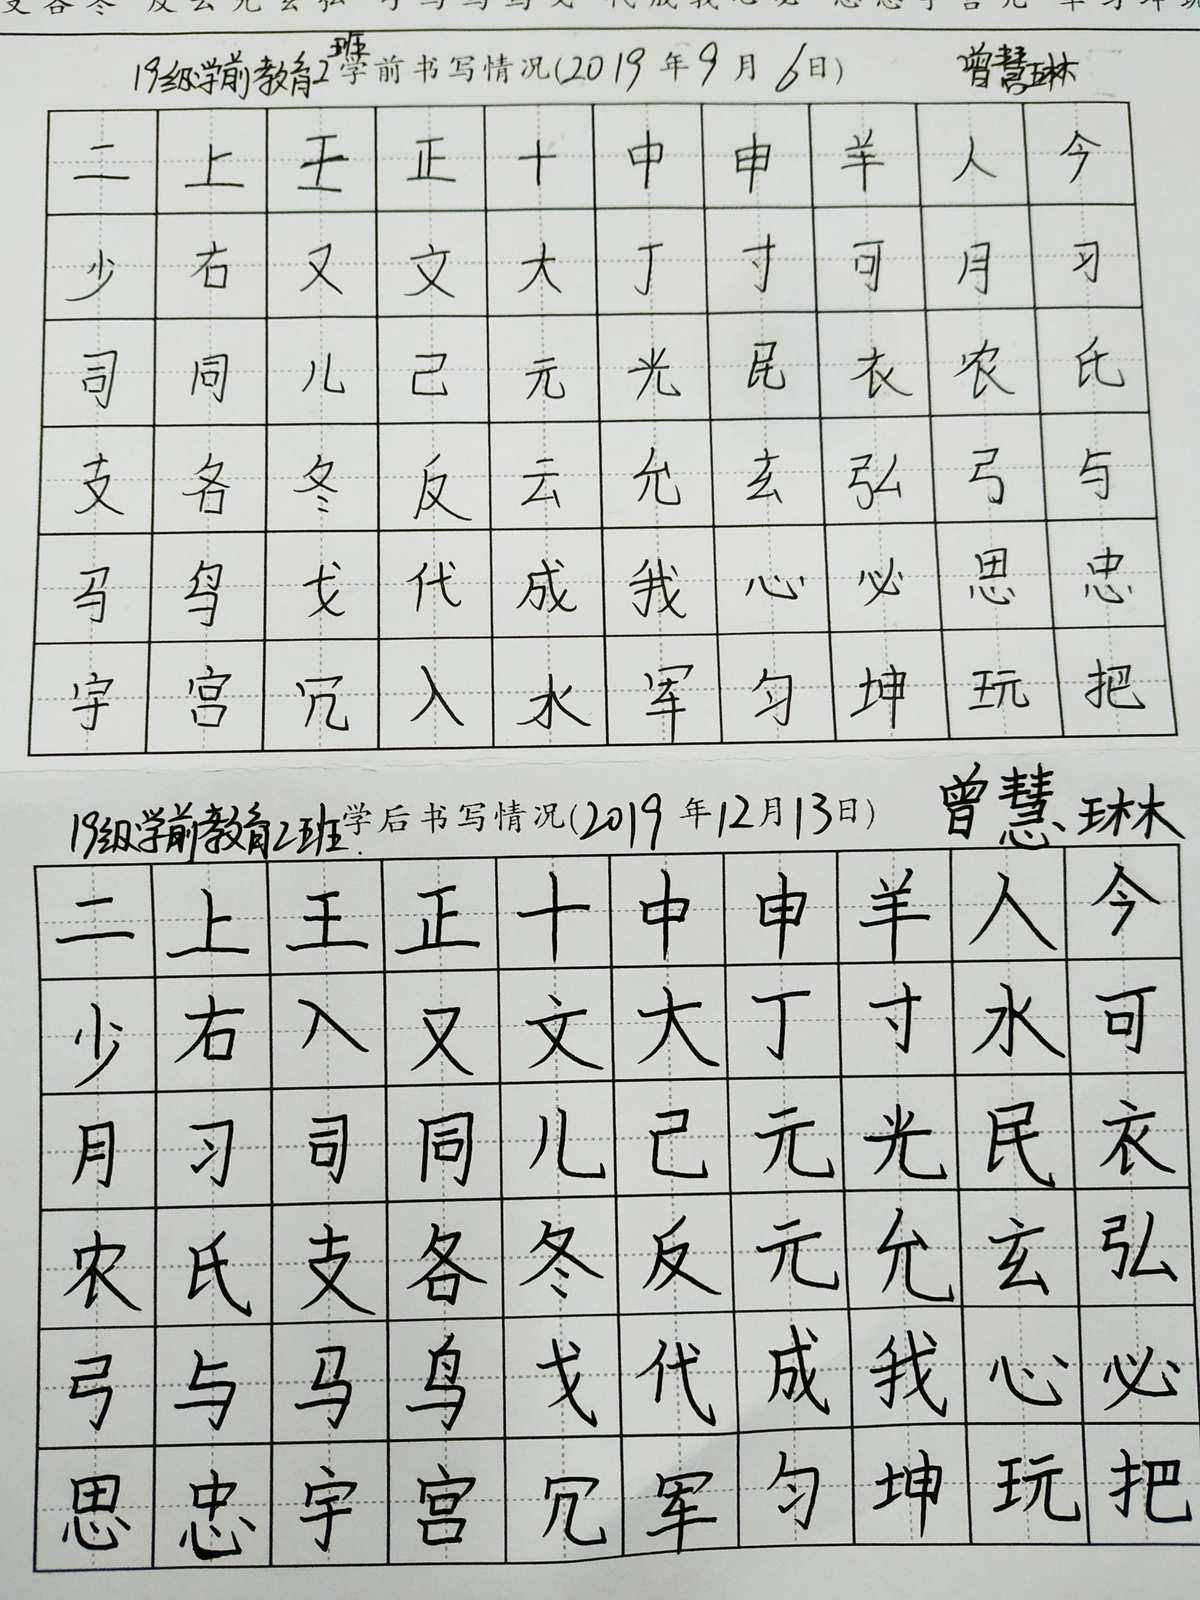 19级学前教育2班学前书写情况(2019年9月6日) 曾慧琳
二上王正十中申羊人今
少右又文大丁寸可月习
司同儿己元光民衣农氏
支各冬反云允玄弘弓与
马鸟戈代成我心必思忠
宇宫冗入水军匀坤玩把
19级学前教育2班学后书写情况(2019年12月13日) 曾慧琳
二上王正十中申羊人今
少右入又文大丁寸水可
月习司同儿己元光民衣
农氏支各冬反元允玄弘
弓与马鸟戈代成我心必
思忠宇宫冗军匀坤玩把